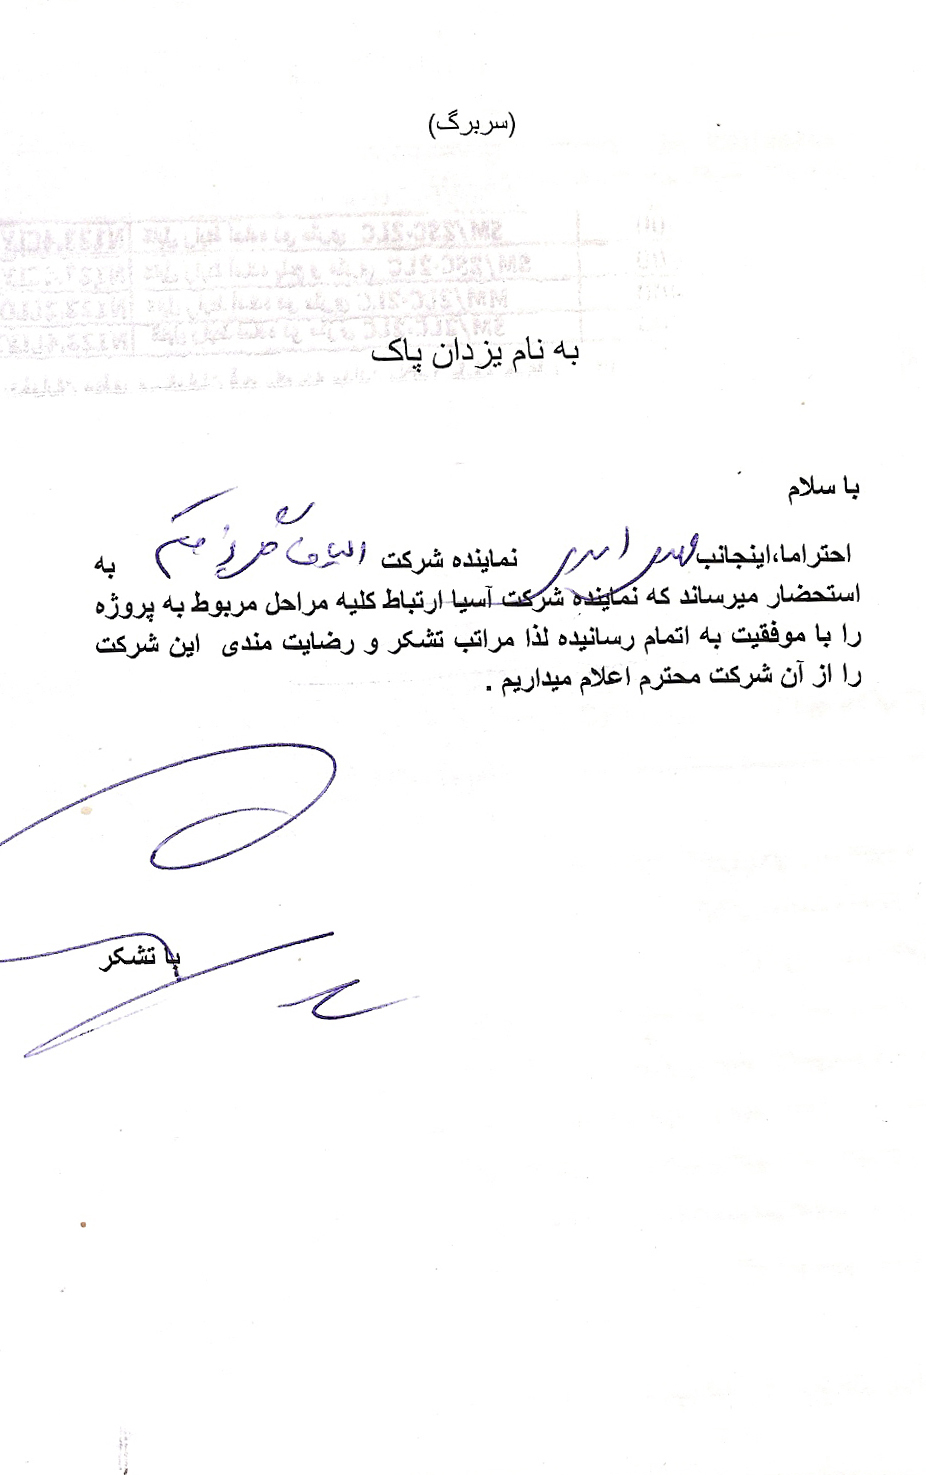 (سربرگ)
به نام یزدان پاک
با سلام
احتراما،اینجانب مهدی اسدی نماینده شرکت الیاف به
استحضار میرساند که نماینده شرکت آسیا ارتباط کلیه مراحل مربوط به پروژه
را با موفقیت به اتمام رسانیده لذا مراتب تشکر و رضایت مندی این شرکت
را از آن شرکت محترم اعلام میداریم .
با تشکر